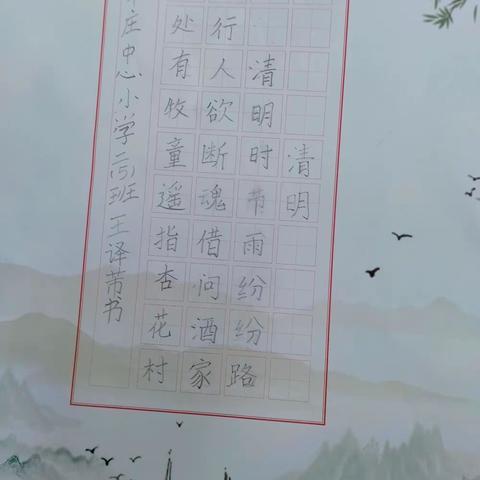 清明
清明时节雨纷纷路
行人欲断魂借问酒家
处有牧童遥指杏花村
庄中心小学二(5)班王译书